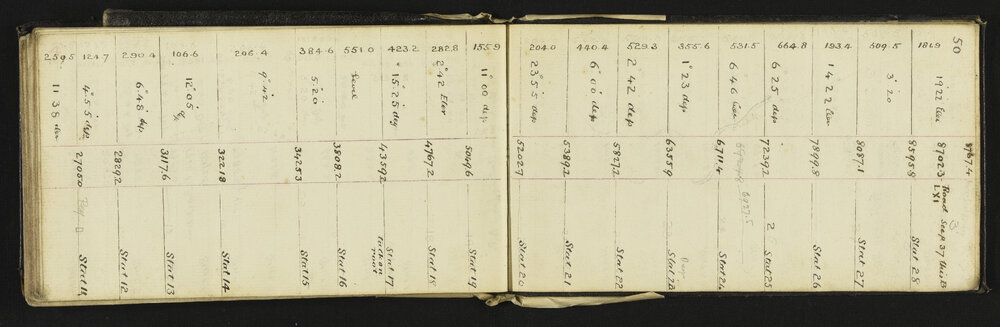 259.5 11.38 elev 27050 Stat 11
124.7 4°55 dep
290.4 6°48 dep 28292 Stat 12
106.6 12°05 3117.6 Stat 13
206.4 9°42 32218 Stat 14
384.6 5°20 34253 Stat 15
551.0 Level 3808.2 Stat 16
423.2 15.25 dep 43592 Stat 17
282.8 2°42 Elev 4767.2 Stat 18
155.9 11°00 dep 5049.6 Stat 19
204.0 23°55 dep 52027 Stat 20
440.4 6°00 dep 53892 Stat 21
529.3 2°42 dep 5827.2 Stat 22
355.6 1°23 dep 63559 Stat 23
531.5 6 46 Elev 6711.4 Stat 24
6927.5
664.8 6°25 dep 72392 2 Stat 25
193.4 1422 Elev 7899.8 Stat 26
509.5 3°20 8087.1 Stat 27
181.9 85958 Stat 28
50 1922 Elev 87023 Road
LXI
8767.4
3